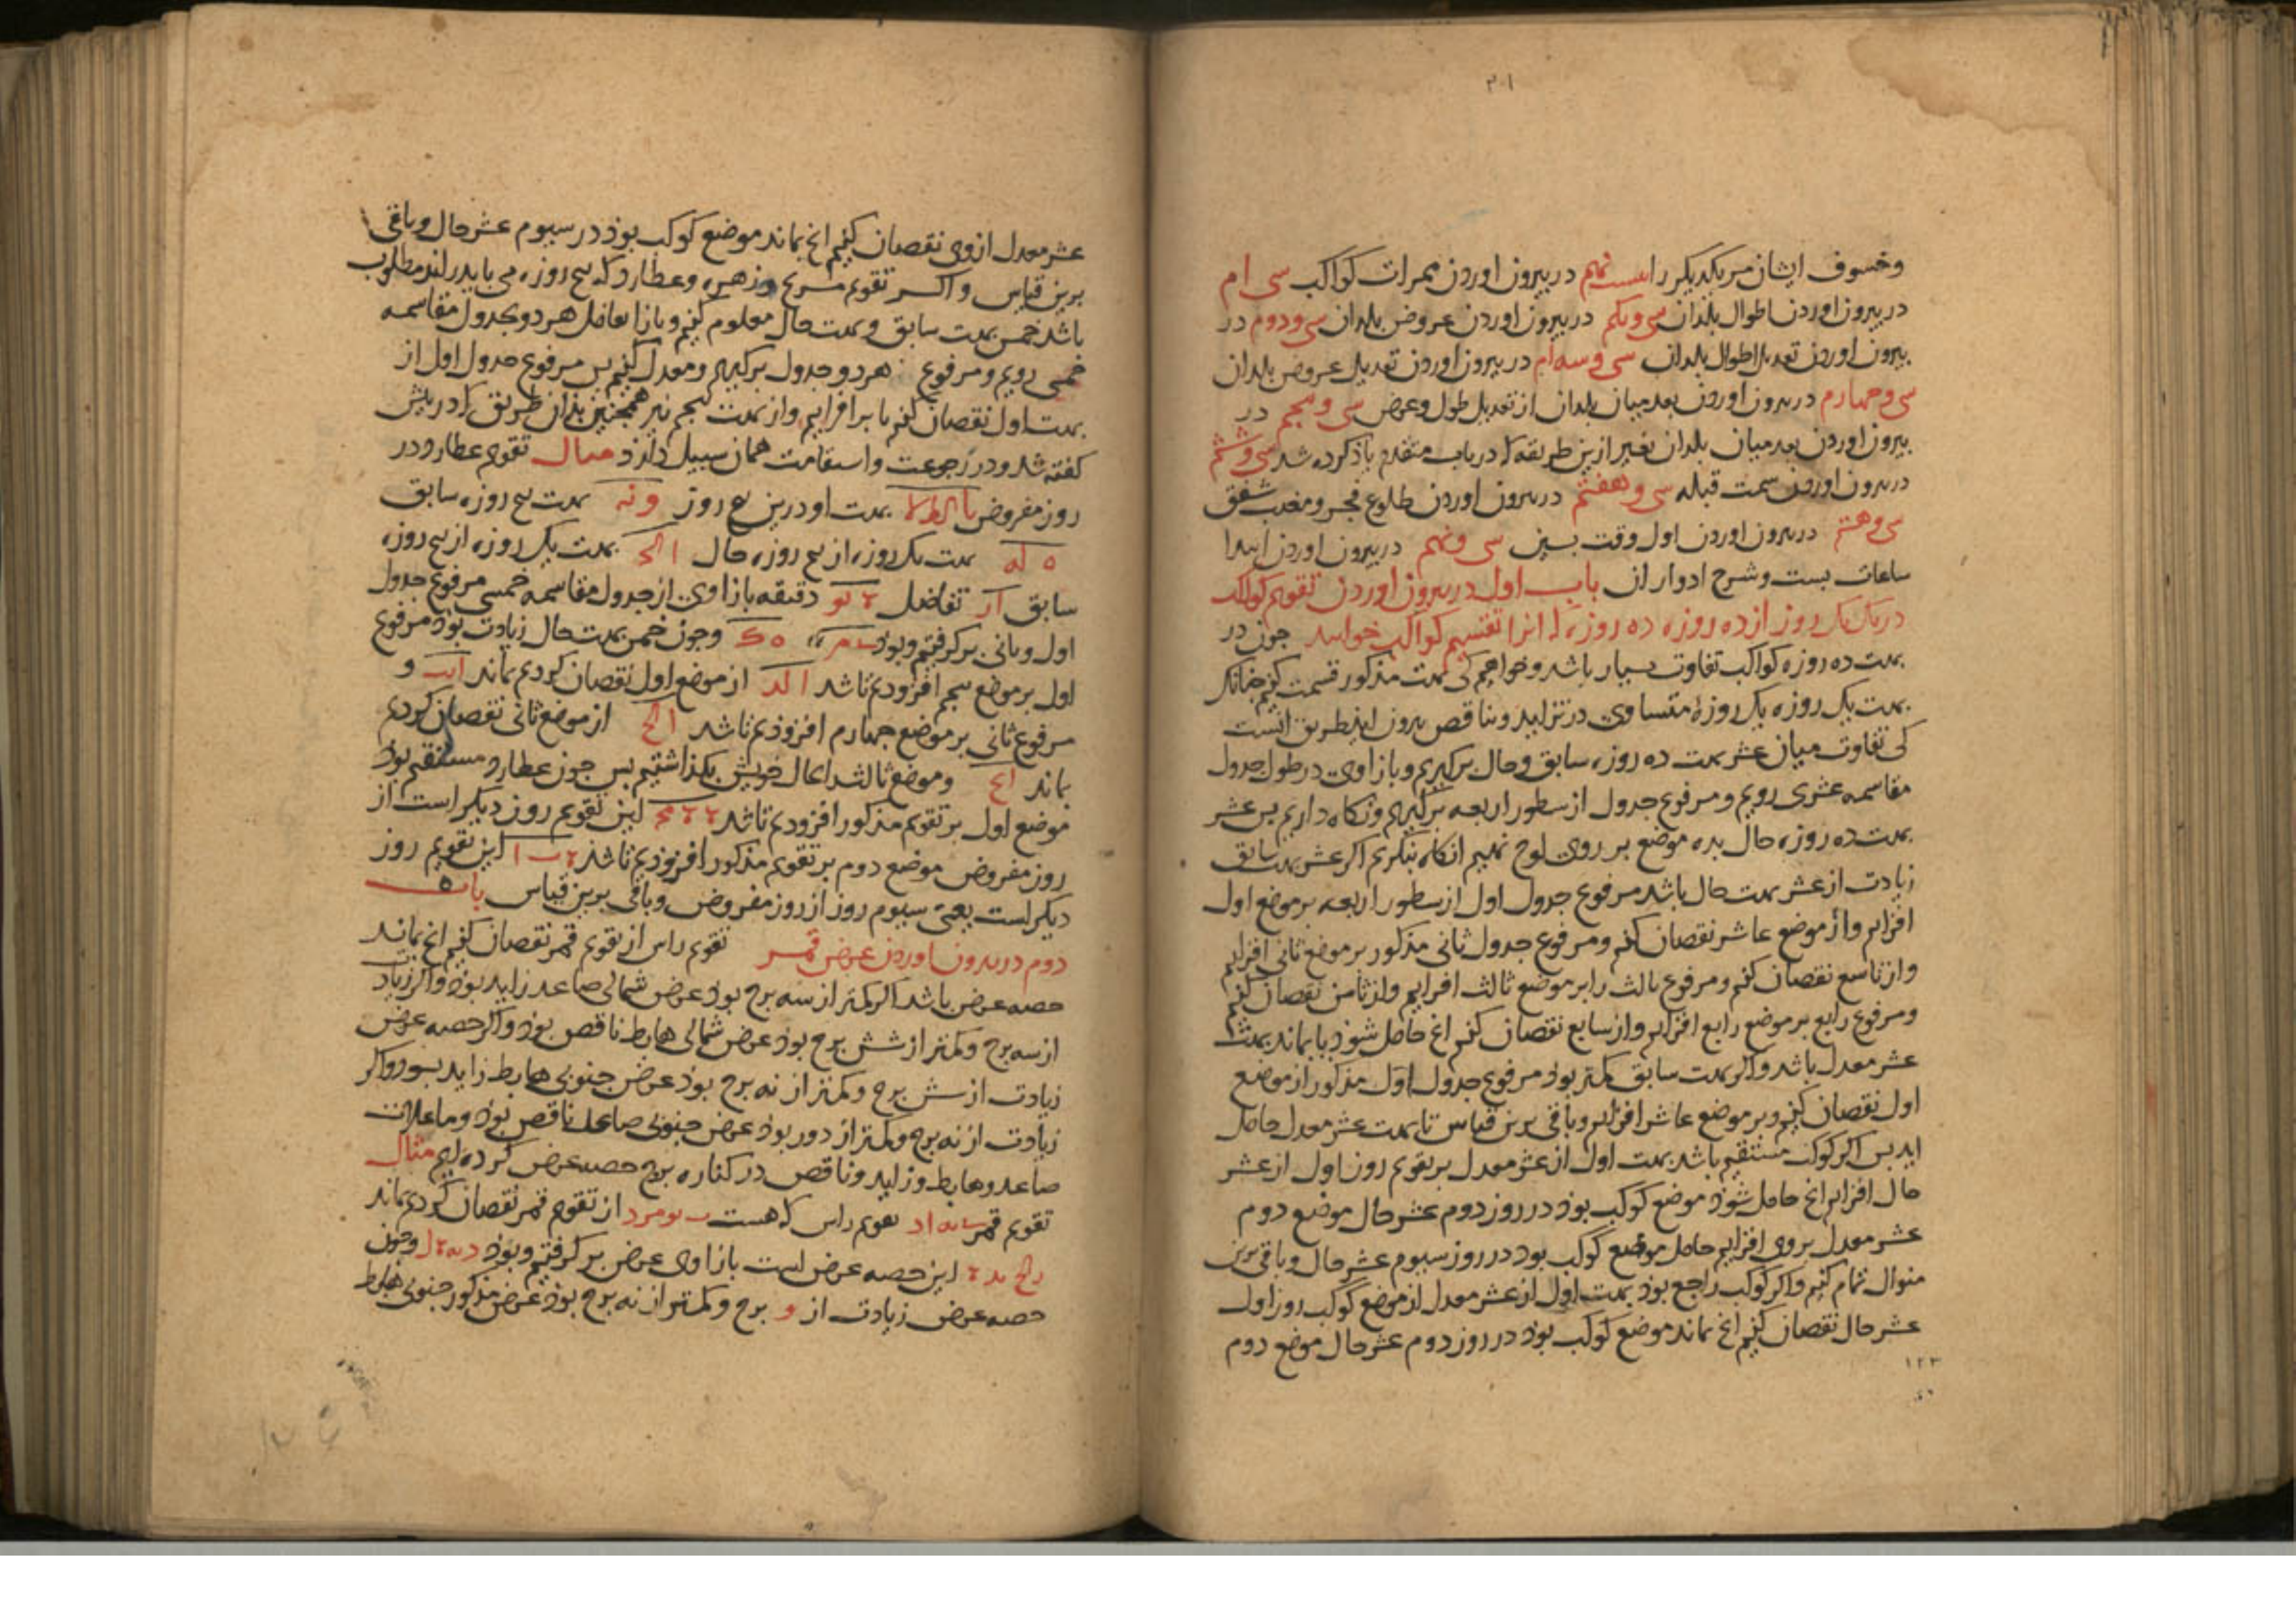 ۳۰۱
وخسوف ایشان مر یکدیگر را بیست نهم در بیرون اوردن ممرات کواکب سی ام
در بیرون اوردن اطوال بلدان سی ویکم در بیرون اوردن عروض بلدان سی ودوم در
بیرون اوردن تعدیل اطوال بلدان سی وسه ام در بیرون اوردن تعدیل عروض بلدان
سی وچهارم در بیرون اوردن بعد میان بلدان از تعدیل طول وعرض سی وپنجم در
بیرون اوردن بعد میان بلدان بغیر ازین طریقه که در باب متقدم یاذ کرده شد سی وششم
در بیرون اوردن سمت قبله سی وهفتم در بیرون اوردن طلوع فجر ومغیب شفق
سی وهشتم در بیرون اوردن اول وقت پسین سی ونهم در بیرون اوردن ابتدا
ساعات بست وشرح ادوار ان باب اول در بیرون اوردن تقویم کواکب
در یک یک روز از ده روزه ده روزه که انرا تقسیم کواکب خوانند چون در
بهت ده روزه کواکب تفاوت بسیار باشد وخواهیم کی بهت مذکور قسمت کنیم چنانک
بهت یک روزه یک روزهٔ متساوی در تزاید وتناقص بیرون اید طریق انست
کی تفاوت میان عشر بهت ده روزه سابق وحال برگیریم وبازا وی در طول جدول
مقاسمه عشری رویم ومرفوع جدول از سطور اربعه برگیریم ونکاه داریم پس عشر
بهت ده روزه حال بده موضع بر روی لوح نهیم انکاه بنکریم اکر عشر بهت سابق
زیادت از عشر بهت حال باشد مرفوع جدول اول از سطور اربعه بر موضع اول
افزایم واز موضع عاشر نقصان کنیم ومرفوع جدول ثانی مذکور بر موضع ثانی افزایم
واز تاسع نقصان کنیم ومرفوع ثالث را بر موضع ثالث افزایم واز ثامن نقصان کنیم
ومرفوع رابع بر موضع رابع افزایم واز سابع نقصان کنیم انچ حاصل شوذ یا بماند بهت
عشر معدل باشد واکر بهت سابق کمتر بوذ مرفوع جدول اول مذکور از موضع
اول نقصان کنیم وبر موضع عاشر افزایم وباقی برین قیاس تا بهت عشر معدل حاصل
اید پس اکر کوکب مستقیم باشد بهت اول از عشر معدل بر تقویم روز اول از عشر
حال افزایم انچ حاصل شوذ موضع کوکب بوذ در روز دوم عشر حال موضع دوم
عشر معدل بر وی افزایم حاصل موضع کوکب بود در روز سیوم عشر حال وباقی برین
منوال تمام کنیم واکر کوکب راجع بوذ بهت اول از عشر معدل از موضع کوکب روز اول
عشر حال نقصان کنیم انچ بماند موضع کوکب بوذ در روز دوم عشر حال موضع دوم
۱۲۳
عشر معدل از وی نقصان کنیم انچ بماند موضع کوکب بوذ در سیوم عشر حال وباقی
برین قیاس واکر تقویم مریخ وزهره وعطارد که پنج روزه می باید در اند مطلوب
باشد خمس بهت سابق وبهت حال معلوم کنیم وبازا تفاضل هر دو بجدول مقاسمه
خمسی رویم ومرفوع هر دو جدول برگیریم ومعدل کنیم پس مرفوع جدول اول از
بهت اول نقصان کنیم یا بر افزایم واز بهت پنجم نیز همچنین بذان طریق که در پیش
کفته شد ودر رجوعت واستقامت همان سبیل دارذ مثال تقویم عطارد در
روز مفروض بهت او درین پنج روز و نه بهت پنج روزه سابق
ه له بهت یک روزه از پنج روزه حال بهت یک روزه از پنج روزه
سابق تفاضل دقیقه بازا وی از جدول مقاسمه خمسی مرفوع جدول
اول وثانی برگرفتیم وبوذ وچون خمس بهت حال زیادت بوذ مرفوع
اول بر موضع پنجم افزودیم تا شد ا لد از موضع اول نقصان کردیم بماند و
مرفوع ثانی بر موضع چهارم افزوذیم تا شد از موضع ثانی نقصان کردیم
بماند وموضع ثالث را بحال خویش بکذاشتیم پس چون عطارد مستقیم بوذ
موضع اول بر تقویم مذکور افزودیم تا شد این تقویم روز دیکر است از
روز مفروض موضع دوم بر تقویم مذکور افزوذیم تا شذ این تقویم روز
دیکرست یعنی سیوم روز از روز مفروض وباقی برین قیاس باب
دوم در بیرون اوردن عرض قمر تقویم راس از تقویم قمر نقصان کنیم انچ بماند
حصه عرض باشد اکر کمتر از سه برج بوذ عرض شمالی صاعد زاید بوذ واکر زیادت
از سه برج وکمتر از شش برج بوذ عرض شمالی هابط ناقص بوذ واکر حصه عرض
زیادت از شش برج وکمتر از نه برج بوذ عرض جنوبی هابط زاید بود واکر
زیادت از نه برج وکمتر از دور بوذ عرض جنوبی صاعد ناقص بوذ وما علامات
صاعد وهابط وزاید وناقص در کناره برج حصه عرض کرده ایم مثال
تقویم قمر تقویم راس که هست از تقویم قمر نقصان کردیم بماند
این حصه عرض است بازا وی عرض برگرفتیم وبوذ وچون
حصه عرض زیادت از و برج وکمتر از نه برج بوذ عرض مذکور جنوبی هابط